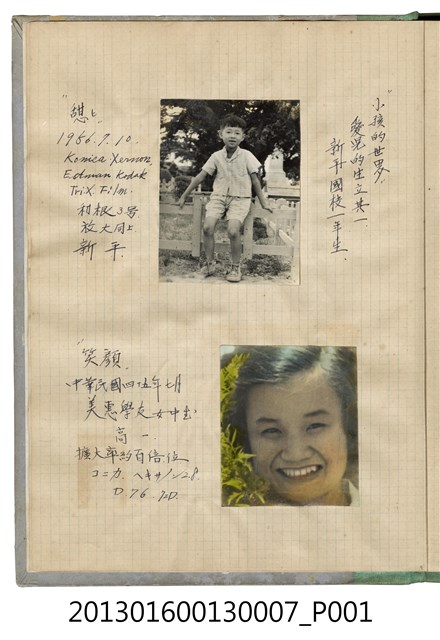 "小孩的世界"
愛児的生立其一
新升國校一年生.
"憩"
1956.7.10.
Konica Xernon
Eduwan Kodak
Tri.X Film.
利根3号
放大同上
新平.
"笑顔"
中華民國四十五年七月
美惠學友女中生
高一
擴大率約百倍位
コニカ.ヘキサノン2.8.
D.76
201301600130007_P001